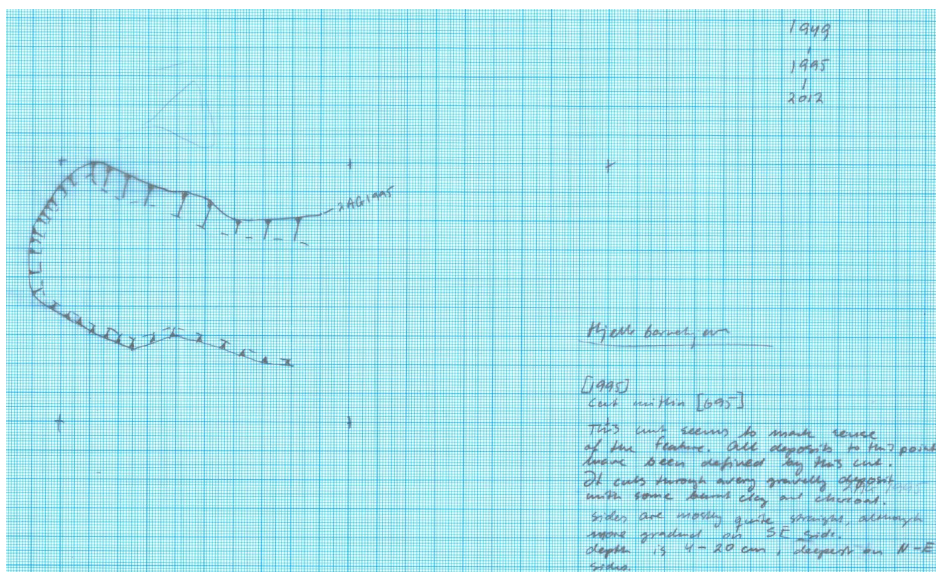 1949
1995
2012
2AG1995
[1995]
Cut within [695]
This cut seems to make sense
of the feature. All deposits to this point
have been defined by this cut.
It cuts through a very gravelly deposit
with some burnt clay and charcoal.
sides are mostly quite straight, although
more gradual on SE side.
depth is 4-20 cm, deepest on N-E
sides.